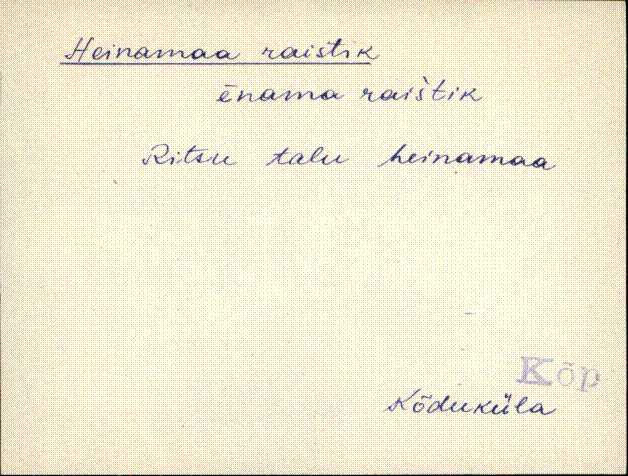 Heinamaa raistik
ēnama raištik
Ritsu talu heinamaa
Kõp
Kõduküla